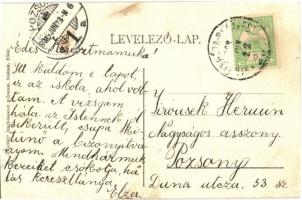 LEVELEZŐ-LAP.
POZSONY
Édes Keresztmamuka!
Itt küldöm e lapot,
ez az iskola, ahol vol-
tam. A vizsgám
hála az Istennek jól
sikerült, csupa ki-
tünő a bizonyítvá-
nyom. Mindhármuk
kezeit csókolja, há-
lás keresztlánya
Elza.
Sirousek Hermin
Nagyságos asszony
Pozsony
Duna utcza. 53. sz.